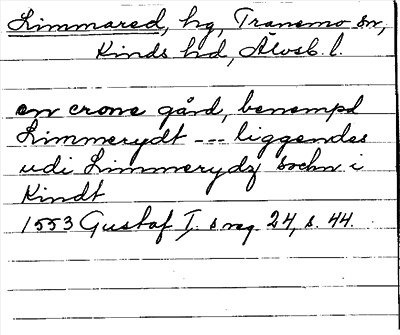 Limmared, hg, Tranemo sn,
Kinds hd, Älvsb. l.
en crone gård, benempd
Limmerydt --- liggendes
udi Limmerydz sochn i
Kindt
1553 Gustaf I. s reg. 24, s. 44.